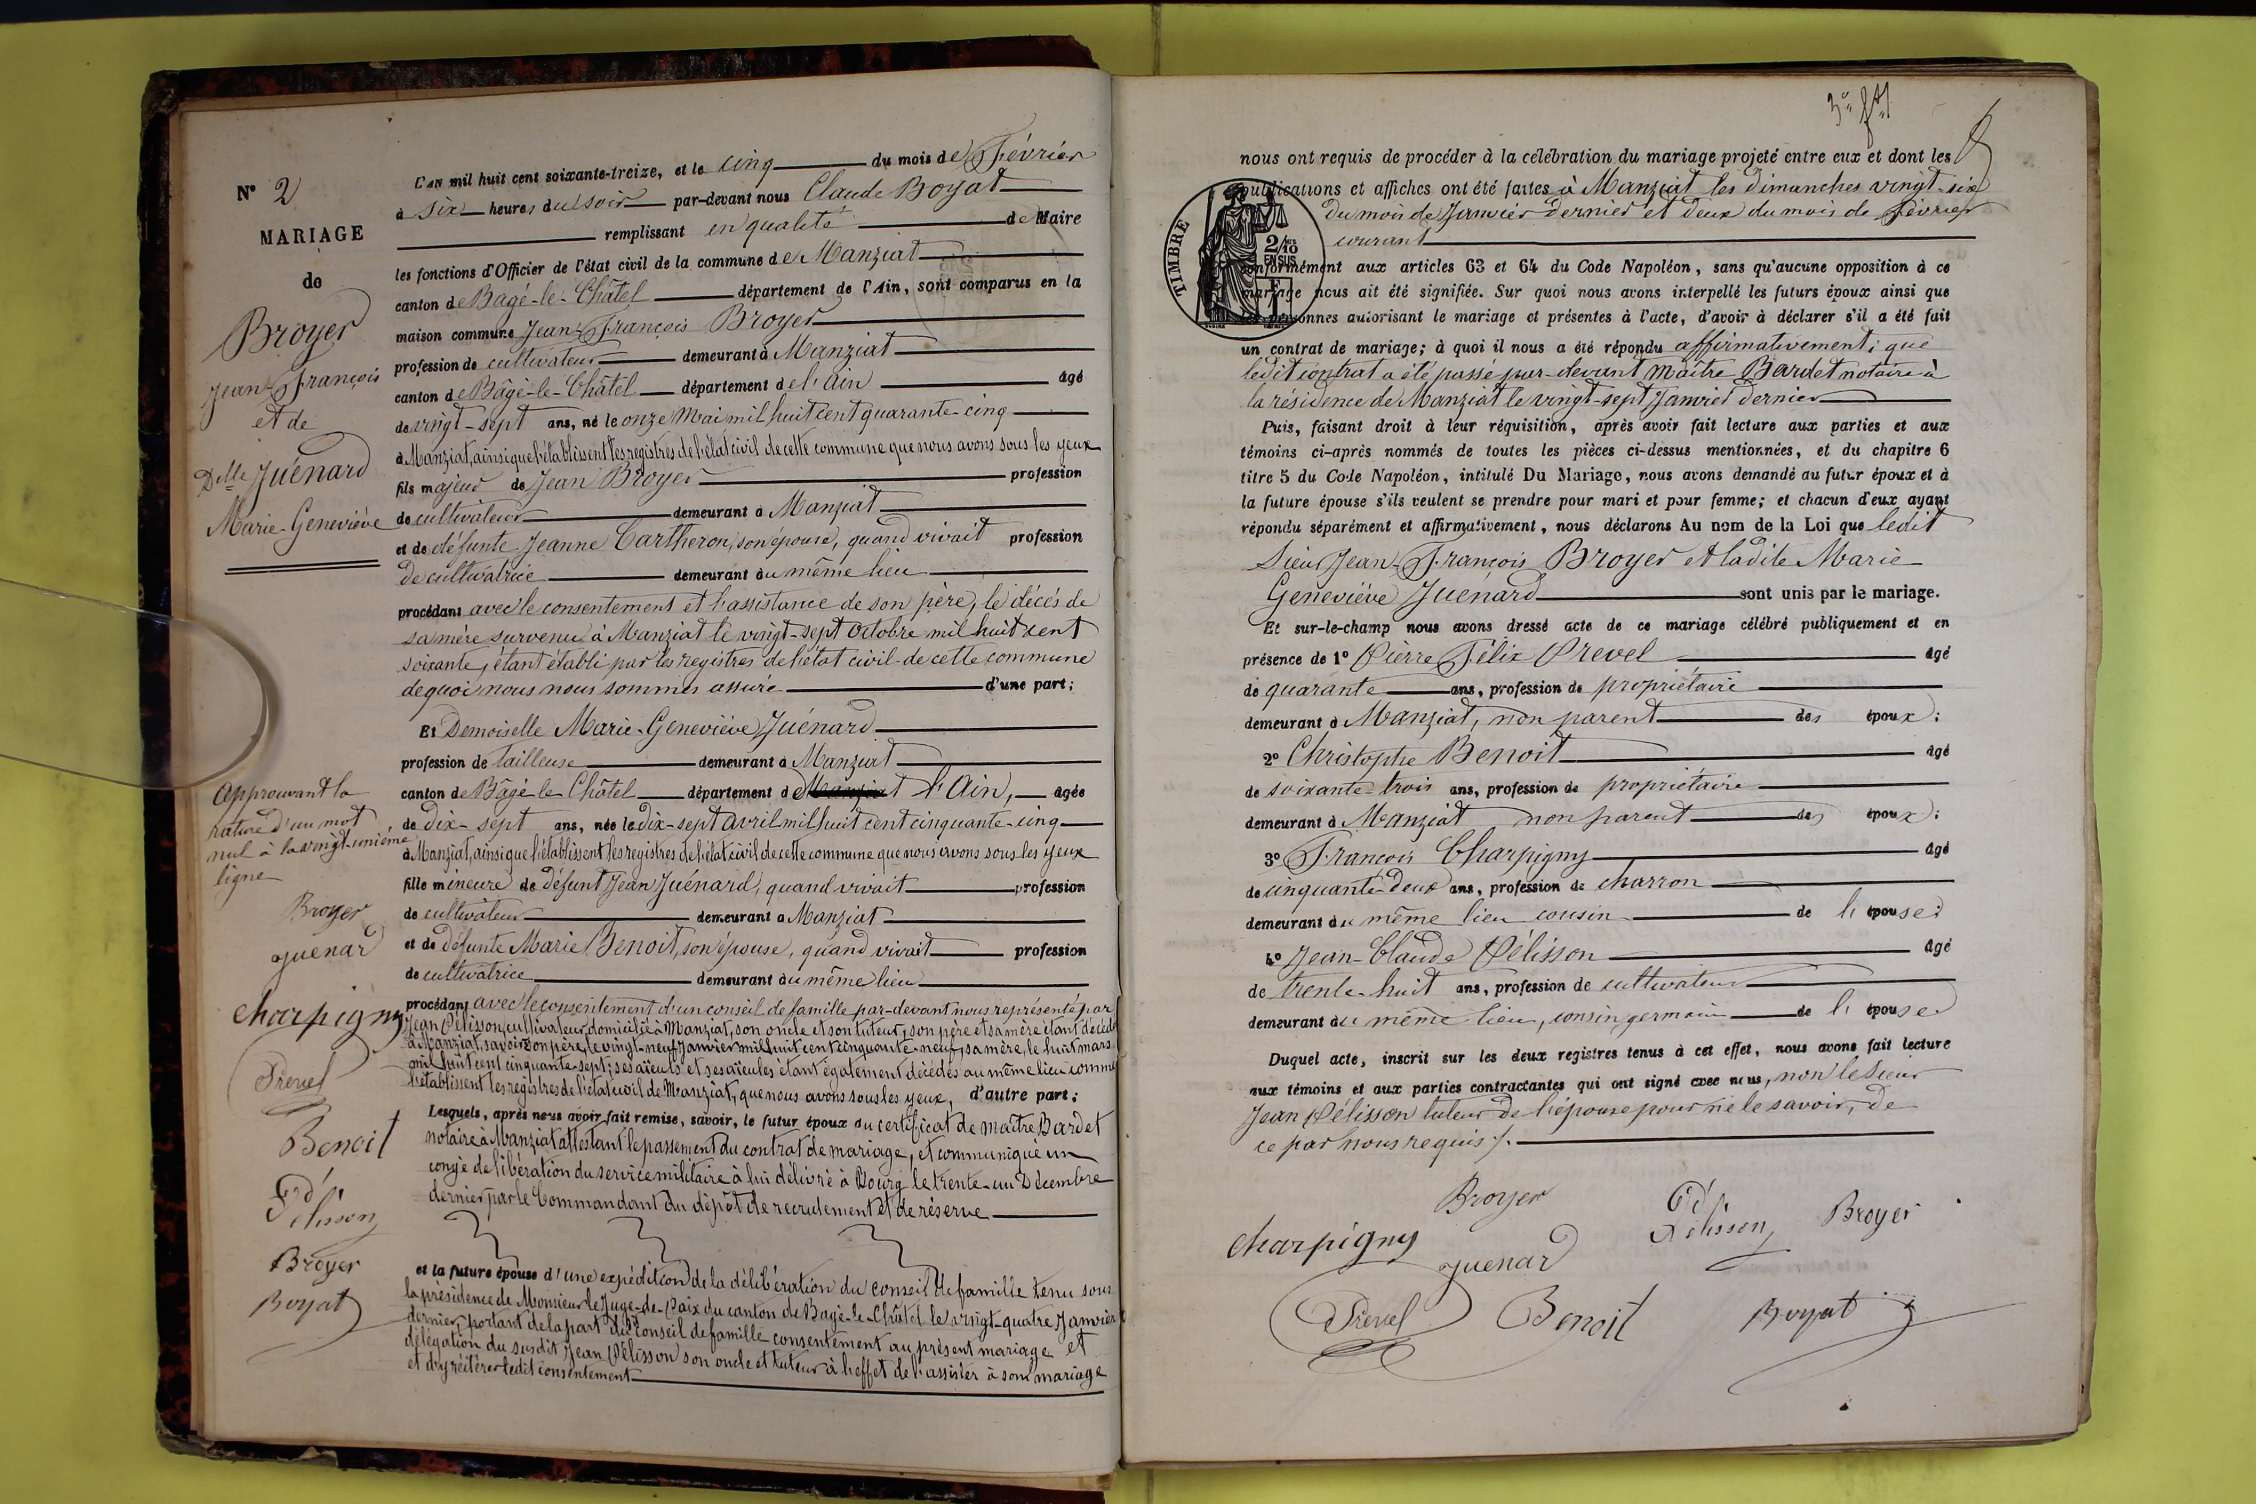 N° 2
MARIAGE
de
Broyer
Jean-François
et de
Delle Juénard
Marie-Geneviève
L'AN mil huit cent soixante-treize, et le cinq du mois de Février
à six heures du soir par-devant nous Claude Boyat
remplissant en qualité de Maire
les fonctions d'Officier de l'état civil de la commune de Manziat
canton de Bagé-le-Châtel département de l'Ain, sont comparus en la
maison commune Jean-François Broyer
profession de cultivateur demeurant à Manziat
canton de Bâgé-le-Châtel département de l'Ain âgé
de vingt-sept ans, né le onze Mai mil huit cent quarante-cinq
à Manziat, ainsi que l'établissent les registres de l'état civil de cette commune que nous avons sous les yeux
fils majeur de Jean Broyer profession
de cultivateur demeurant à Manziat
et de défunte Jeanne Cartheron, son épouse, quand vivait profession
de cultivatrice demeurant au même lieu
procédant avec le consentement et l'assistance de son père, le décès de
sa mère survenu à Manziat le vingt-sept Octobre mil huit cent
soixante, étant établi par les registres de l'état civil de cette commune
de quoi nous nous sommes assuré d'une part;
Et Demoiselle Marie-Geneviève Juénard
profession de tailleuse demeurant à Manziat
canton de Bâgé-le-Châtel département de Manziat l'Ain, âgée
de dix-sept ans, née le dix-sept avril mil huit cent cinquante-cinq
à Manziat, ainsi que l'établissent les registres de l'état civil de cette commune que nous avons sous les yeux
fille mineure de défunt Jean Juénard, quand vivait profession
de cultivateur demeurant à Manziat
et de défunte Marie Benoit, son épouse, quand vivait profession
de cultivatrice demeurant au même lieu
procédant avec le consentement d'un conseil de famille par-devant nous représenté par
Jean Pélisson, cultivateur, domicilié à Manziat, son oncle et son tuteur, son père et sa mère étant décédés
à Manziat, savoir son père, le vingt-neuf Janvier mil huit cent cinquante-neuf, sa mère, le huit mars
mil huit cent cinquante-sept; ses aïeuls et ses aïeules étant également décédés au même lieu comme
l'établissent les registres de l'état civil de Manziat, que nous avons sous les yeux, d'autre part;
Lesquels, après nous avoir fait remise, savoir, le futur époux du certificat de maître Bardet
notaire à Manziat attestant le passement du contrat de mariage, et communiqué un
congé de libération du service militaire à lui délivré à Bourg le trente-un Décembre
dernier par le Commandant du dépôt de recrutement et de réserve
et la future épouse d'une expédition de la délibération du conseil de famille tenu sous
la présidence de Monsieur le Juge-de-Paix du canton de Bagé-le-Châtel le vingt-quatre Janvier
dernier, portant de la part dudit conseil de famille consentement au présent mariage et
délégation du susdit Jean Pélisson son oncle et tuteur à l'effet de l'assister à son mariage
et d'y réitérer ledit consentement
Approuvant la
rature d'un mot
nul à la vingt-unième
ligne
Broyer
Juenard
Charpigny
Prevel
Benoit
Pélisson
Broyer
Boyat
nous ont requis de procéder à la célébration du mariage projeté entre eux et dont les
publications et affiches ont été faites à Manziat les dimanches vingt-six
du mois de Janvier dernier et deux du mois de Février
courant
TIMBRE
2/10
EN SUS
conformément aux articles 63 et 64 du Code Napoléon, sans qu'aucune opposition à ce
mariage nous ait été signifiée. Sur quoi nous avons interpellé les futurs époux ainsi que
les personnes autorisant le mariage et présentes à l'acte, d'avoir à déclarer s'il a été fait
un contrat de mariage; à quoi il nous a été répondu affirmativement; que
ledit contrat a été passé par-devant Maître Bardet notaire à
la résidence de Manziat le vingt-sept Janvier dernier
Puis, faisant droit à leur réquisition, après avoir fait lecture aux parties et aux
témoins ci-après nommés de toutes les pièces ci-dessus mentionnées, et du chapitre 6
titre 5 du Code Napoléon, intitulé Du Mariage, nous avons demandé au futur époux et à
la future épouse s'ils veulent se prendre pour mari et pour femme; et chacun d'eux ayant
répondu séparément et affirmativement, nous déclarons Au nom de la Loi que ledit
Sieur Jean-François Broyer et ladite Marie-
Geneviève Juénard sont unis par le mariage.
Et sur-le-champ nous avons dressé acte de ce mariage célébré publiquement et en
présence de 1° Pierre Félix Prevel âgé
de quarante ans, profession de propriétaire
demeurant à Manziat, non parent des époux;
2° Christophe Benoit âgé
de soixante-trois ans, profession de propriétaire
demeurant à Manziat non parent des époux;
3° François Charpigny âgé
de cinquante-deux ans, profession de charron
demeurant au même lieu cousin de l'épouse;
4° Jean-Claude Pélisson âgé
de trente-huit ans, profession de cultivateur
demeurant au même lieu, cousin germain de l'épouse
Duquel acte, inscrit sur les deux registres tenus à cet effet, nous avons fait lecture
aux témoins et aux parties contractantes qui ont signé avec nous, non le Sieur
Jean Pélisson tuteur de l'épouse pour ne le savoir, de
ce par nous requis.
Broyer
Pélisson
Broyer
Charpigny
Juenard
Prevel
Benoit
Boyat